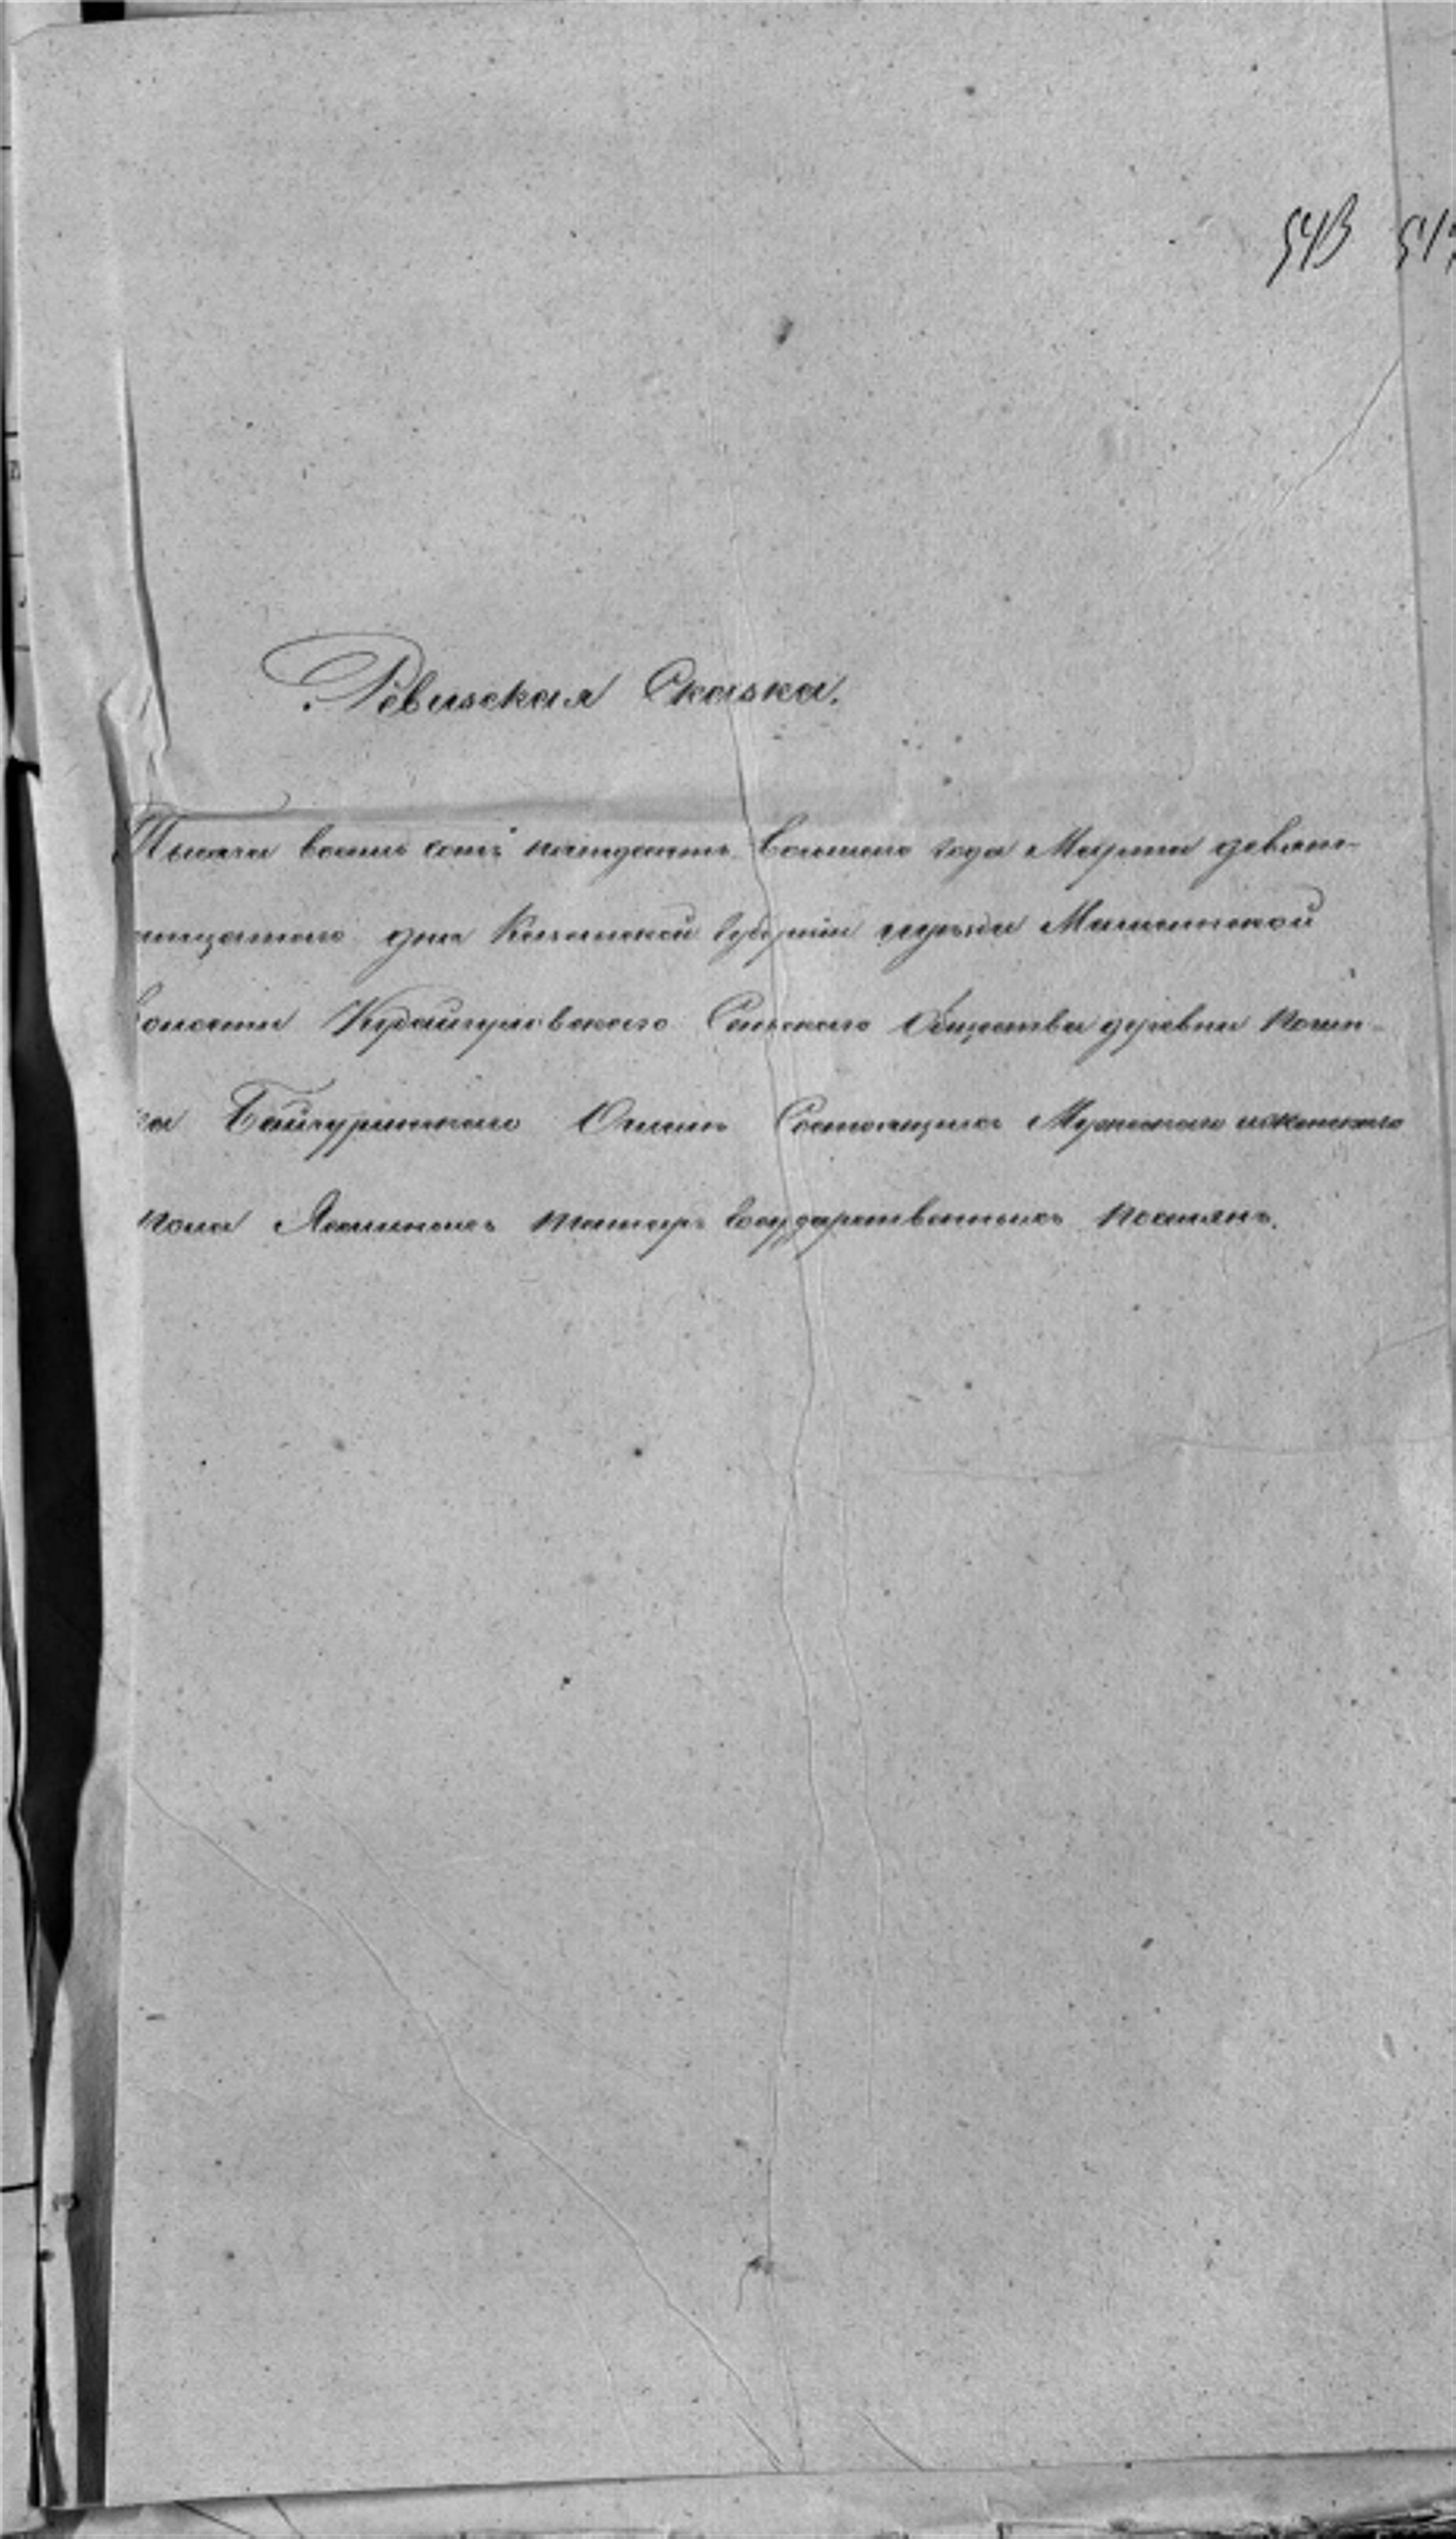 543 517
Ревизская Сказка.
Тысяча восемь сотъ пятьдесятъ восьмого года Марта девят-
надцатого дня Казанской губерніи уѣзда Мамашской
волости Кудашуровскаго Сельскаго Общества деревни Почин-
ка Байчуринскаго О Состоящихъ Мужескаго и женскаго
пола Ясашныхъ татаръ государственныхъ поселянъ.